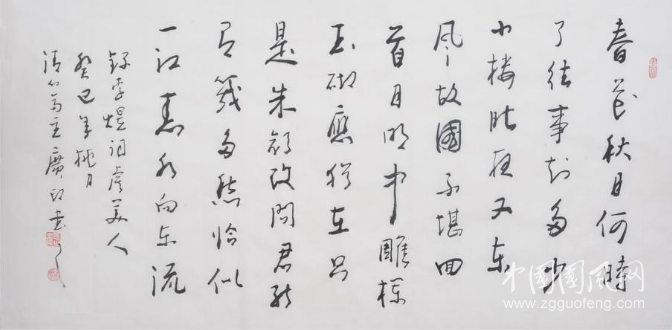 春花秋月何時
了往事知多少
小樓昨夜又東
風故國不堪回
首月明中雕欄
玉砌應猶在只
是朱顏改問君能
有幾多愁恰似
一江春水向東流
錄李煜詞虞美人
癸巳年桃月
清 主廣印書
中國國風网
www.zgguofeng.com